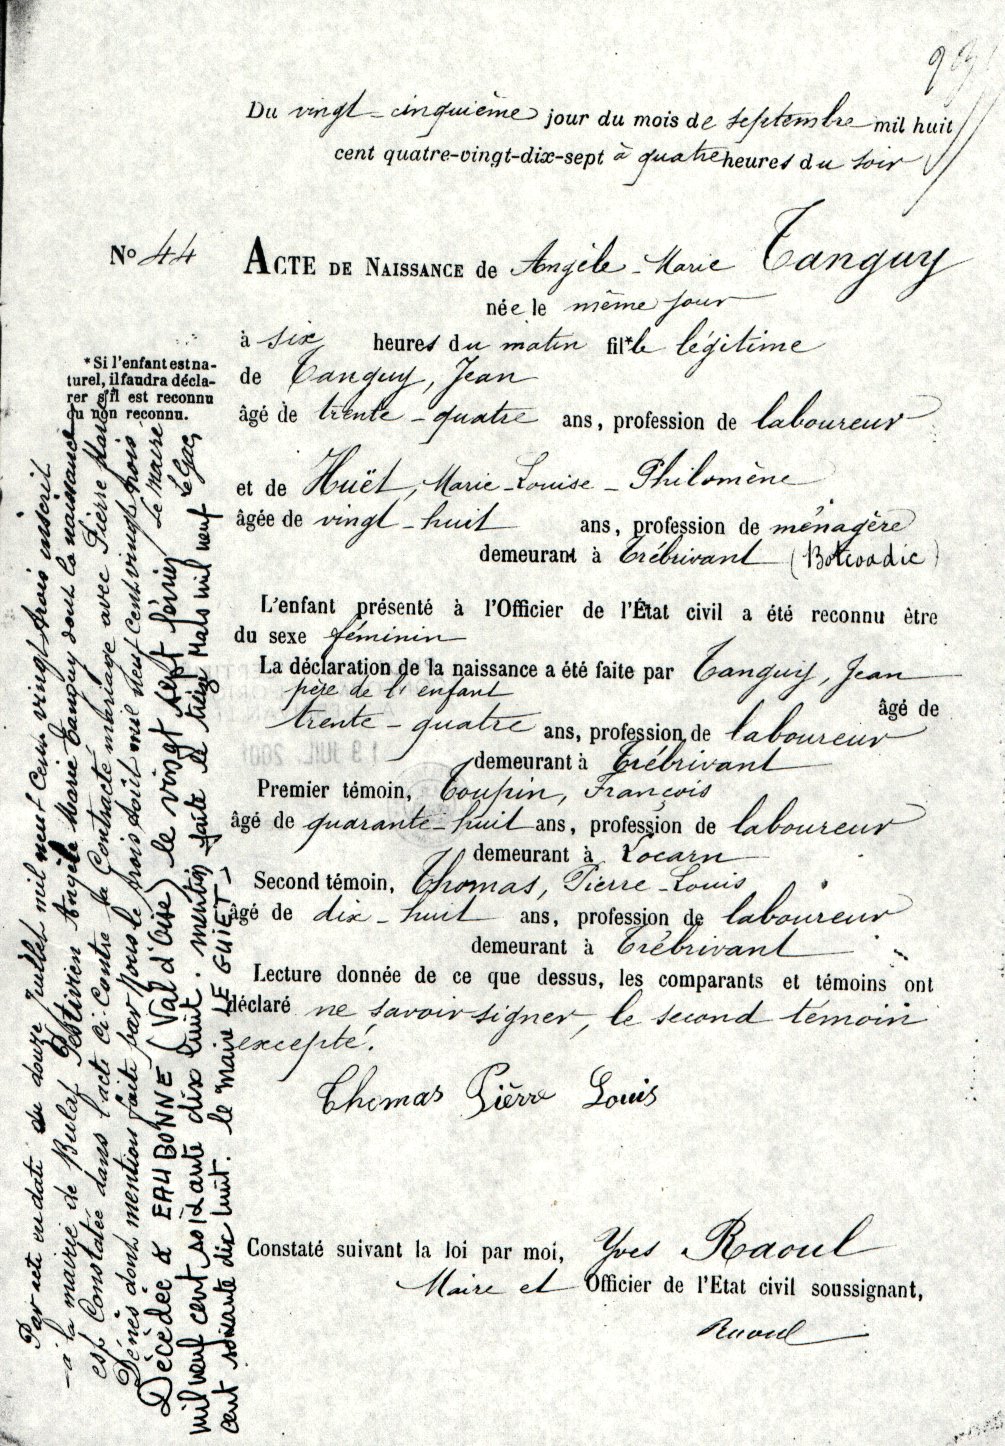 Du vingt-cinquième jour du mois de septembre mil huit
cent quatre-vingt-dix-sept à quatre heures du soir
N° 44
ACTE DE NAISSANCE de Angèle-Marie Tanguy
née le même jour
à six heures du matin fille légitime
de Tanguy, Jean
âgé de trente-quatre ans, profession de laboureur
et de Huët, Marie-Louise-Philomène
âgée de vingt-huit ans, profession de ménagère
demeurant à Trébrivant
L'enfant présenté à l'Officier de l'État civil a été reconnu être
du sexe féminin
La déclaration de la naissance a été faite par Tanguy, Jean
père de l'enfant âgé de
trente-quatre ans, profession de laboureur
demeurant à Trébrivant
Premier témoin, Toupin, François
âgé de quarante-huit ans, profession de laboureur
demeurant à Locarn
Second témoin, Thomas, Pierre-Louis
âgé de dix-huit ans, profession de laboureur
demeurant à Trébrivant
Lecture donnée de ce que dessus, les comparants et témoins ont
déclaré ne savoir signer, le second témoin
excepté.
Thomas Pierre Louis
Constaté suivant la loi par moi, Yves Raoul
Maire et Officier de l'Etat civil soussignant,
Raoul
*Si l'enfant est na-
turel, il faudra décla-
rer s'il est reconnu
ou non reconnu.
Par acte en date du douze Juillet mil neuf cent vingt trois inscrit
à la mairie de Bulat Pestivien Angèle Marie Tanguy dont la naissance
est Constatée dans l'acte ci-Contre a Contracté mariage avec Pierre Marie
Dénès dont mention faite par nous le trois Août mil neuf cent vingt trois
Le Maire
Le Gac
Décédée à EAUBONNE (Val d'Oise) le vingt sept février
mil neuf cent soixante dix huit. mention faite le treize Mars mil neuf
cent soixante dix huit. le Maire LE GUIET
19 JUIL. 2001